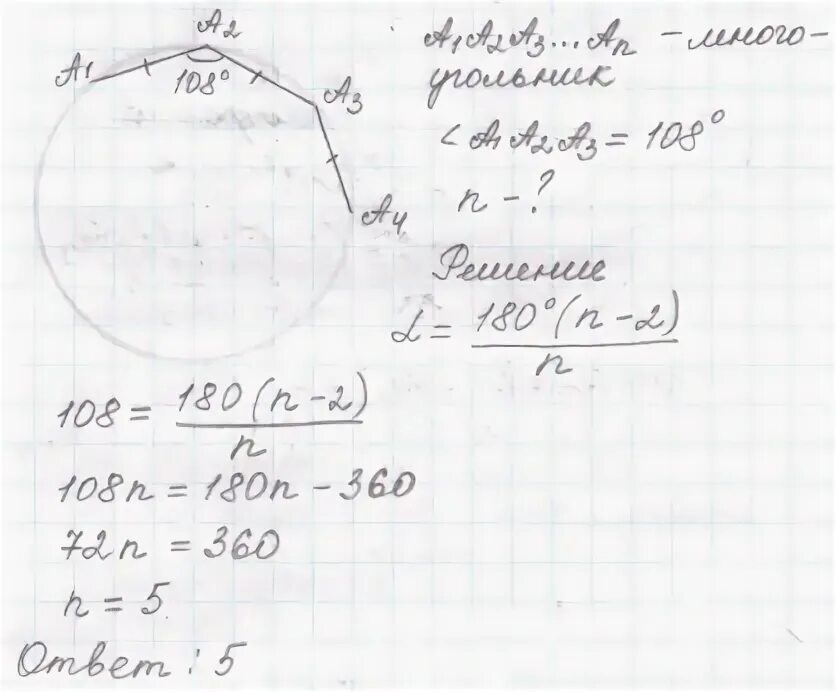 A₂
A₁
108°
A₃
A₄
A₁A₂A₃...Aₙ – много-
угольник
< A₁A₂A₃ = 108°
n – ?
Решение
α = 180°(n – 2) / n
108 = 180(n – 2) / n
108n = 180n – 360
72n = 360
n = 5
Ответ : 5